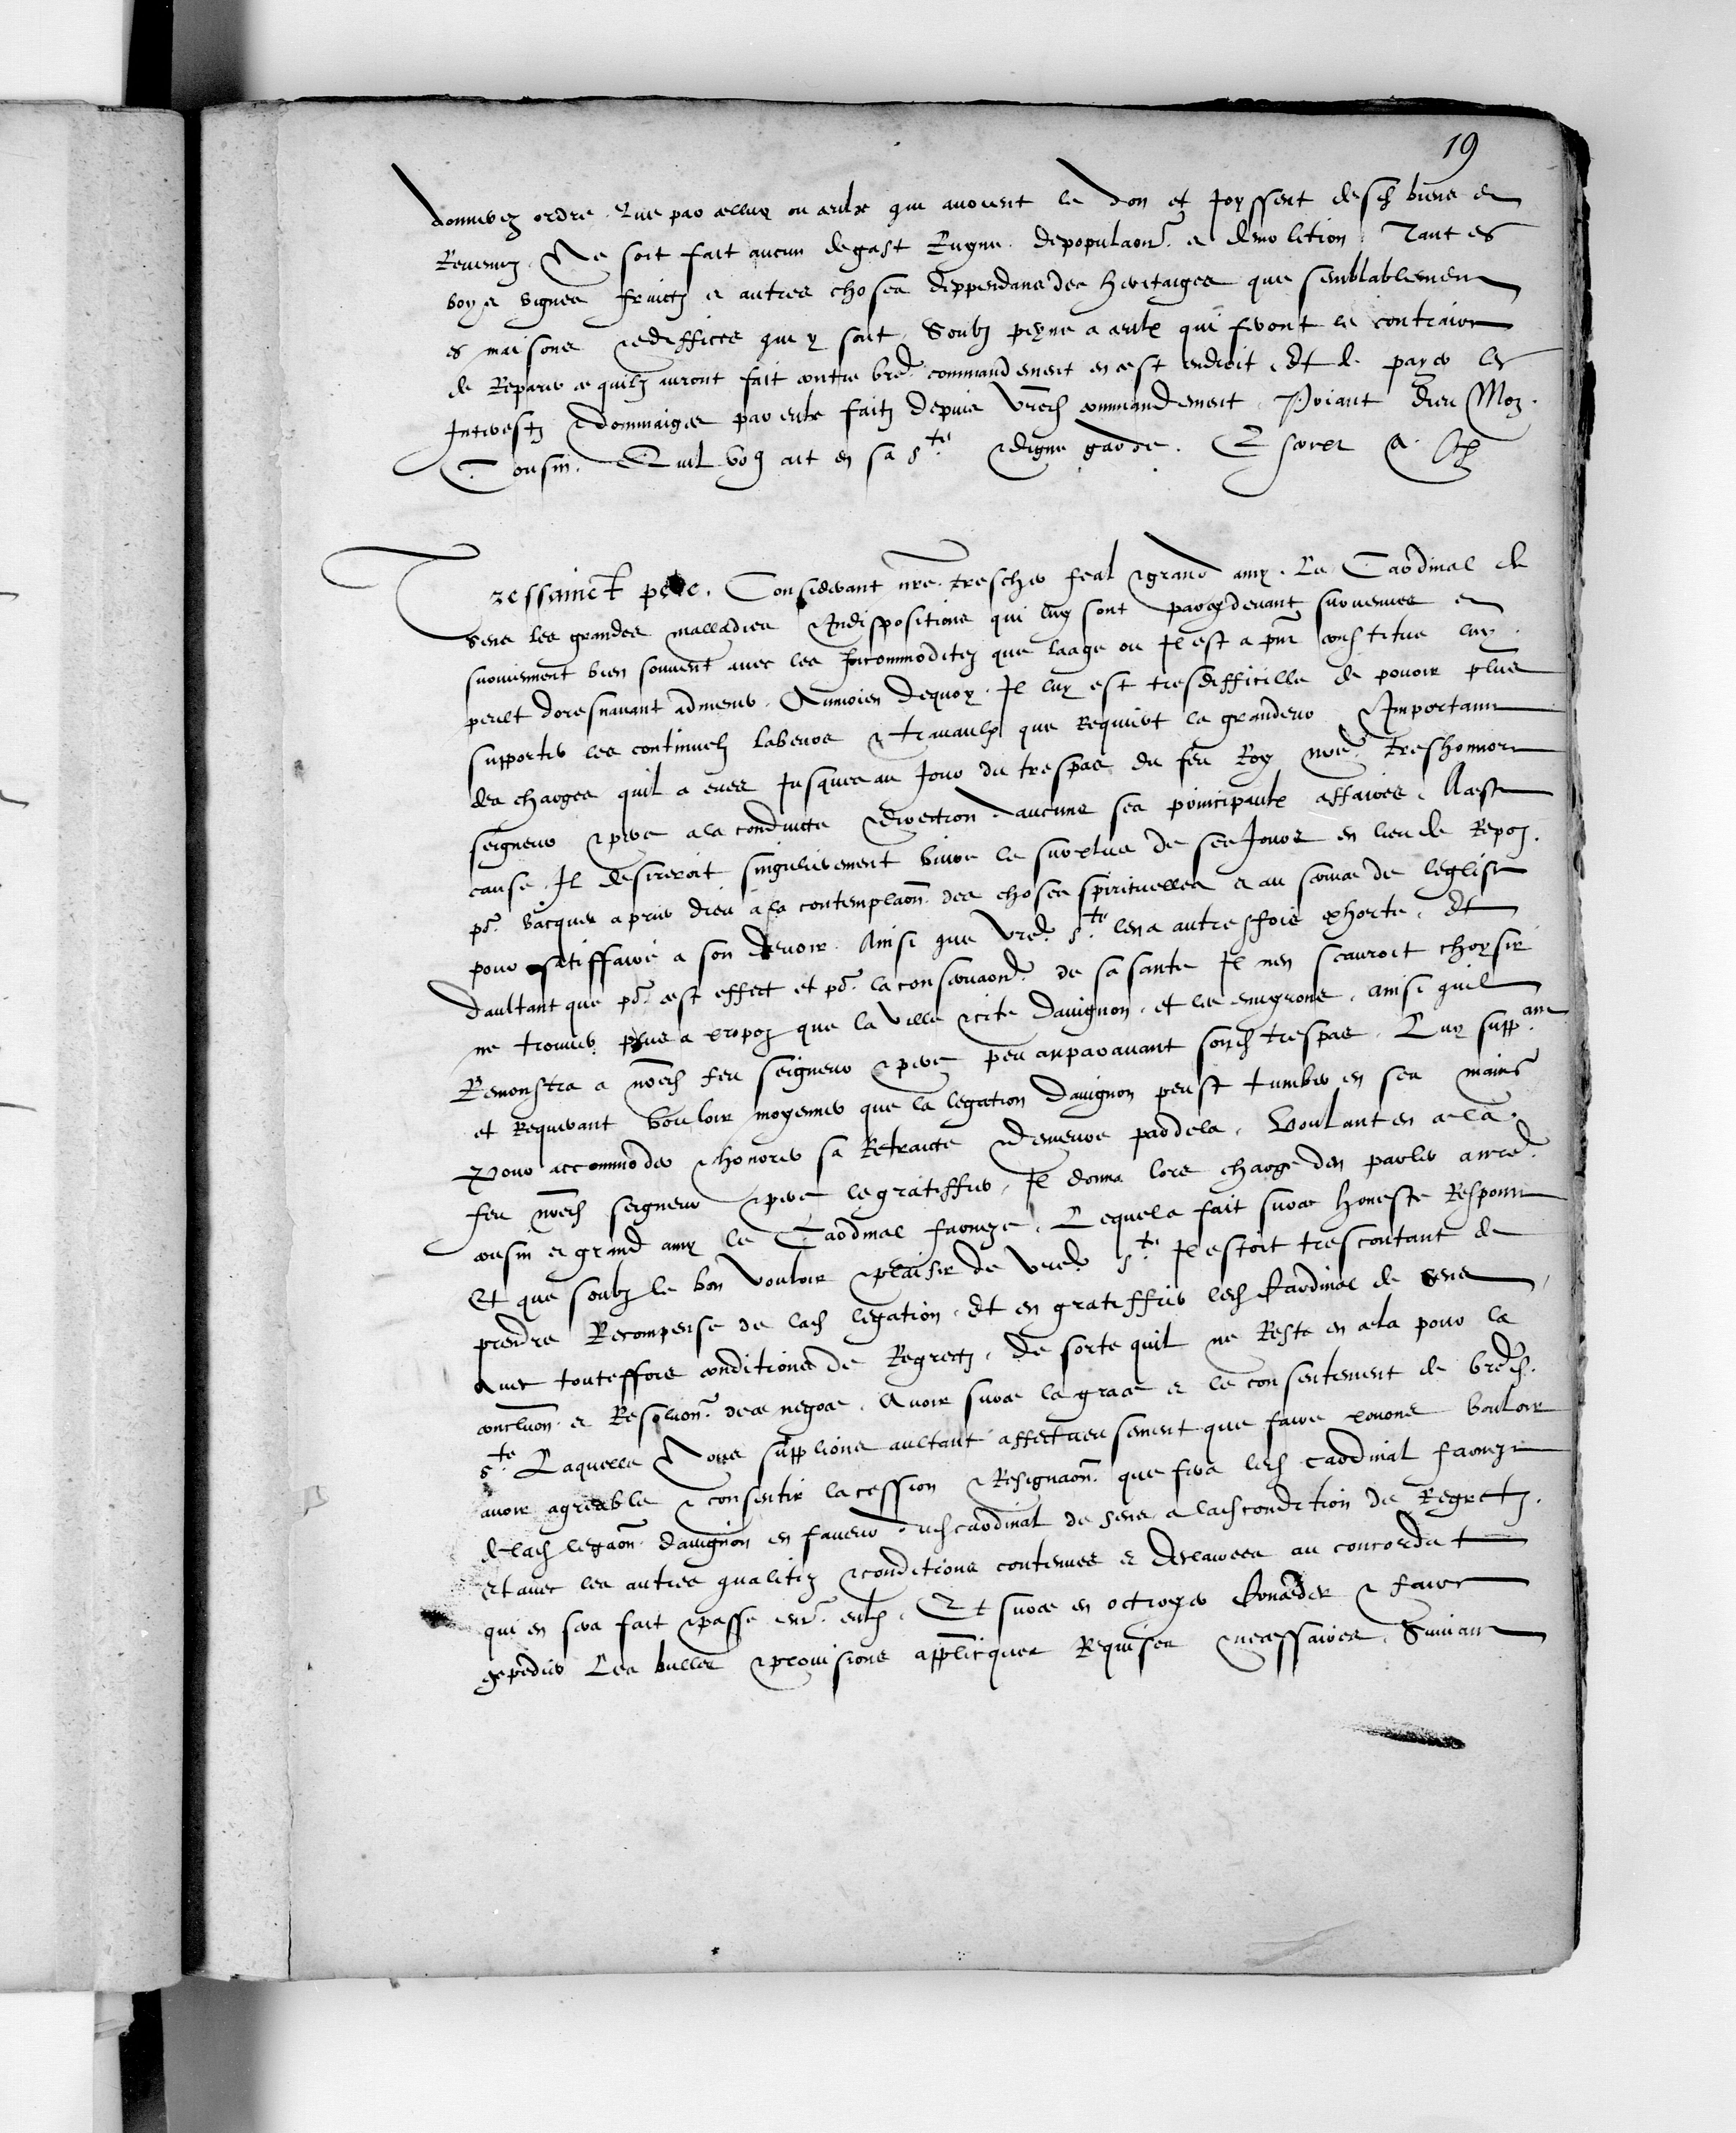 19
donnerez ordre que par celluy ou ceulx qui auront le don et joyssent desd biens et
Revenuz Ne soit fait aucun degast Ruyne depopulaon et demolition Tant es
boys vignes fruictz et autres choses deppendans des heritaiges que semblablement
es maisons et ediffices qui y sont Soubz peyne a ceulx qui feront le contraire
de Reparer ce quilz auront fait contre vred commandement en cest endroit Et de payer les
Interestz et dommaiges par eulx faitz depuis vred commandement Priant dieu Mon
Cousin Quil vo9 ait en sa s.te et digne garde. Escript a
Tressainct pere. Considerant nre trescher feal et grand amy Le Cardinal de
Sens les grandes malladies et Indispositions qui luy sont par cy devant survenues et
surviennent bien souvent avec les Incommoditez que laage ou Il est a pnt constitue luy
peult doresnavant admener Aumoien dequoy Il luy est tresdifficille de pouoir plus
supporter les continuelz labeurs et travaulx que Requiert la grandeur et Importance
des charges quil a eues Jusques au Jour du trespas du feu Roy nre treshonnore
seigneur et pere a la conduicte et direction daucuns ses principaulx affaires A ceste
cause Il desireroit singulierement vivre le surplus de ses Jours en lieu de Repoz
po.r vacquer a prier dieu a la contemplaon des choses spirituelles et au service de leglise
pour satiffaire a son devoir Ainsi que vred s.te len a autresfois exhorte Et
daultant que po.r cest effect et po.r la conservaon de sa sante Il nen scauroit choysir
ne trouver plus a propoz que la ville et cite davignon et les environs ainsi quil
Remonstra a nred feu seigneur et pere peu auparavant sond trespas Luy supp.ant
et Requerant vouloir moyenner que la legation davignon peust tumber en ses mains
Pour accommoder et honorer sa Retraicte et demeure pardela Voulant en cela
feu nred seigneur et pere le gratiffier Il donna lors charge den parler a nred
cousin et grand amy le Cardinal farneze Lequel a fait sur ce honneste Responce
Et que soubz le bon vouloir et plaisir de vred s.te Il estoit trescontant de
prendre Recompense de lad legation Et en gratiffier led Cardinal de Sens
Avec touteffois conditions de Regrectz De sorte quil ne Reste en cela pour la
concluon et Resoluon de ce negoce Avoir sur ce la grace et le consentement de vred
s.te Laquelle Nous supplions aultant affectueusement que faire pouons vouloir
avoir agreable et consentir la cession et Resignaon que fera led cardinal farneze
de lad legaon davignon en faveur dud cardinal de Sens a lad condition de Regretz
Et avec les autres qualitez et conditions contenues et declairees au concordat
qui en sera fait et passe entre eulx Et sur ce en octroyer conceder et faire
expedier Les bulles et provisions applicquees Requises et necessaires Suivant